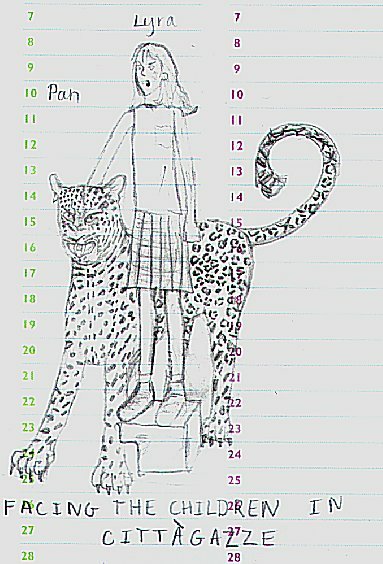 7 Lyra 7
8 8
9 9
10 Pan 10
11 11
12 12
13 13
14 14
15 15
16 16
17 17
18 18
19 19
20 20
21 21
22 22
23 23
24 24
25 25
26 26
FACING THE CHILDREN IN
27 CITTÀGAZZE 27
28 28